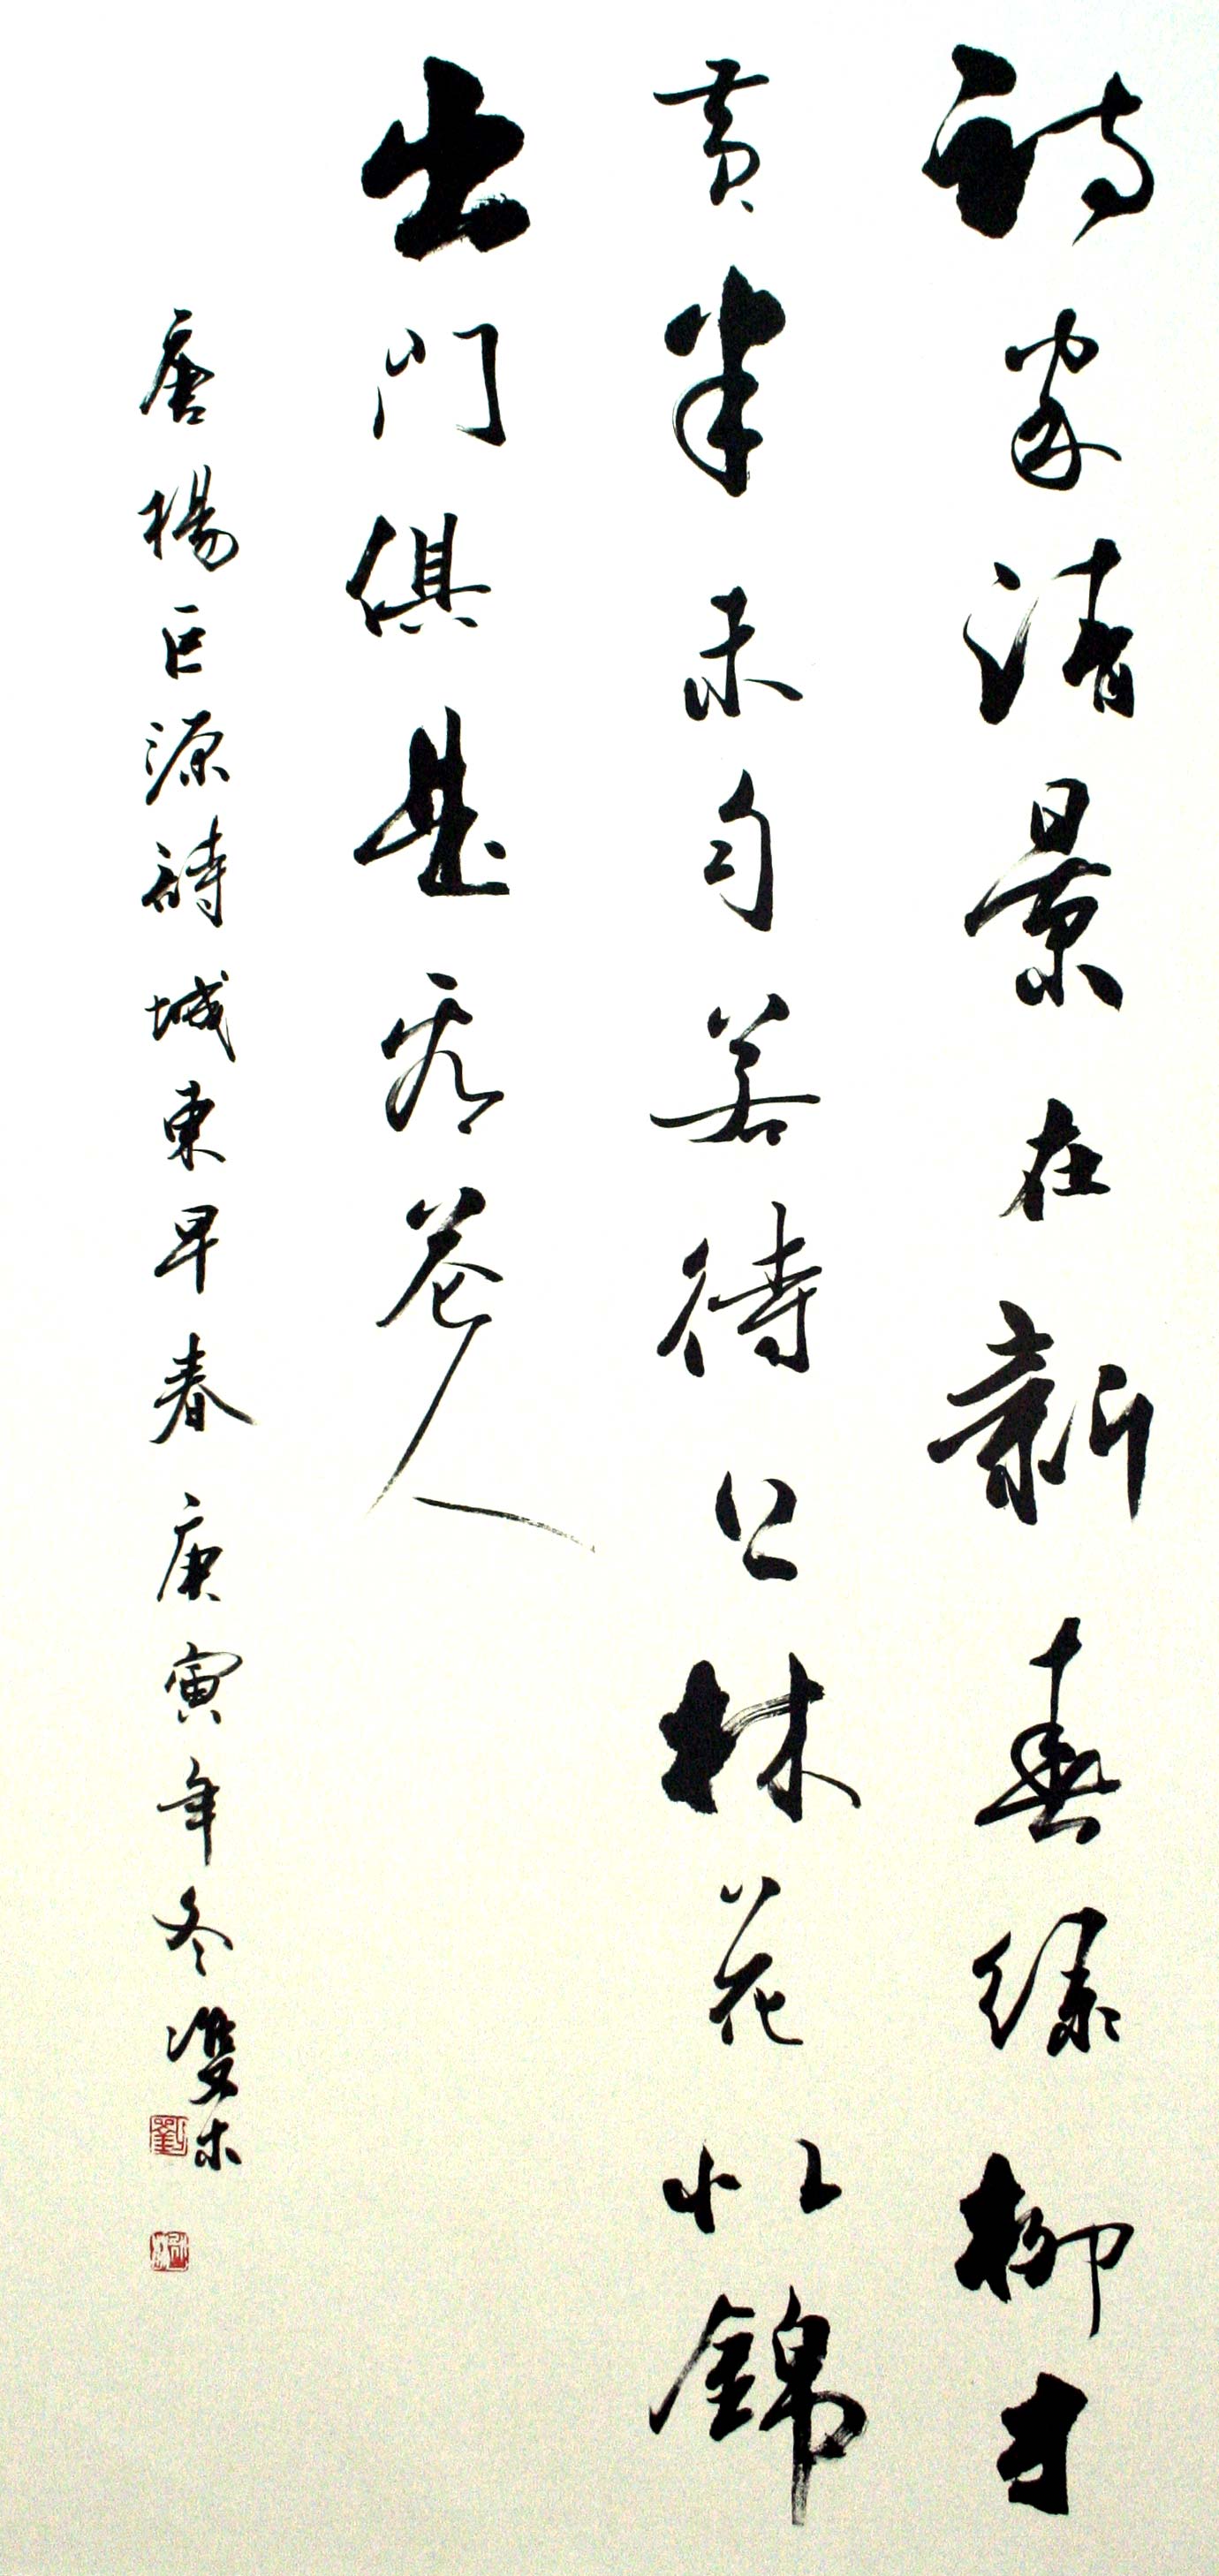 詩家清景在新春綠柳才
黃半未勻若待上林花似錦
出門俱是看花人
唐楊巨源詩城東早春庚寅年冬雙木
劉